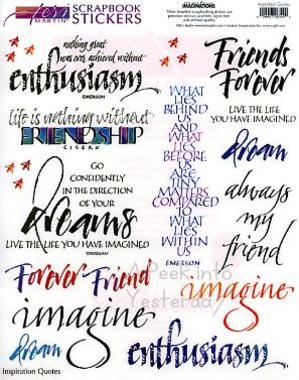 teri
MARTIN
SCRAPBOOK
STICKERS
IMAGINATIONS
Inspiration Quotes
nothing great
was ever achieved without
enthusiasm
EMERSON
life is nothing without
FRIENDSHIP
CICERO
GO
CONFIDENTLY
IN THE DIRECTION
OF YOUR
dreams
LIVE THE LIFE YOU HAVE IMAGINED
THOREAU
Forever Friend
imagine
dream
Inspiration Quotes
WHAT
LIES
BEHIND
US
AND
WHAT
LIES
BEFORE
US
ARE
TINY
MATTERS
COMPARED
TO
WHAT
LIES
WITHIN
US
EMERSON
Friends
Forever
LIVE THE LIFE
YOU HAVE IMAGINED
dream
always
my
friend
A Peek into
Yesterday
imagine
enthusiasm